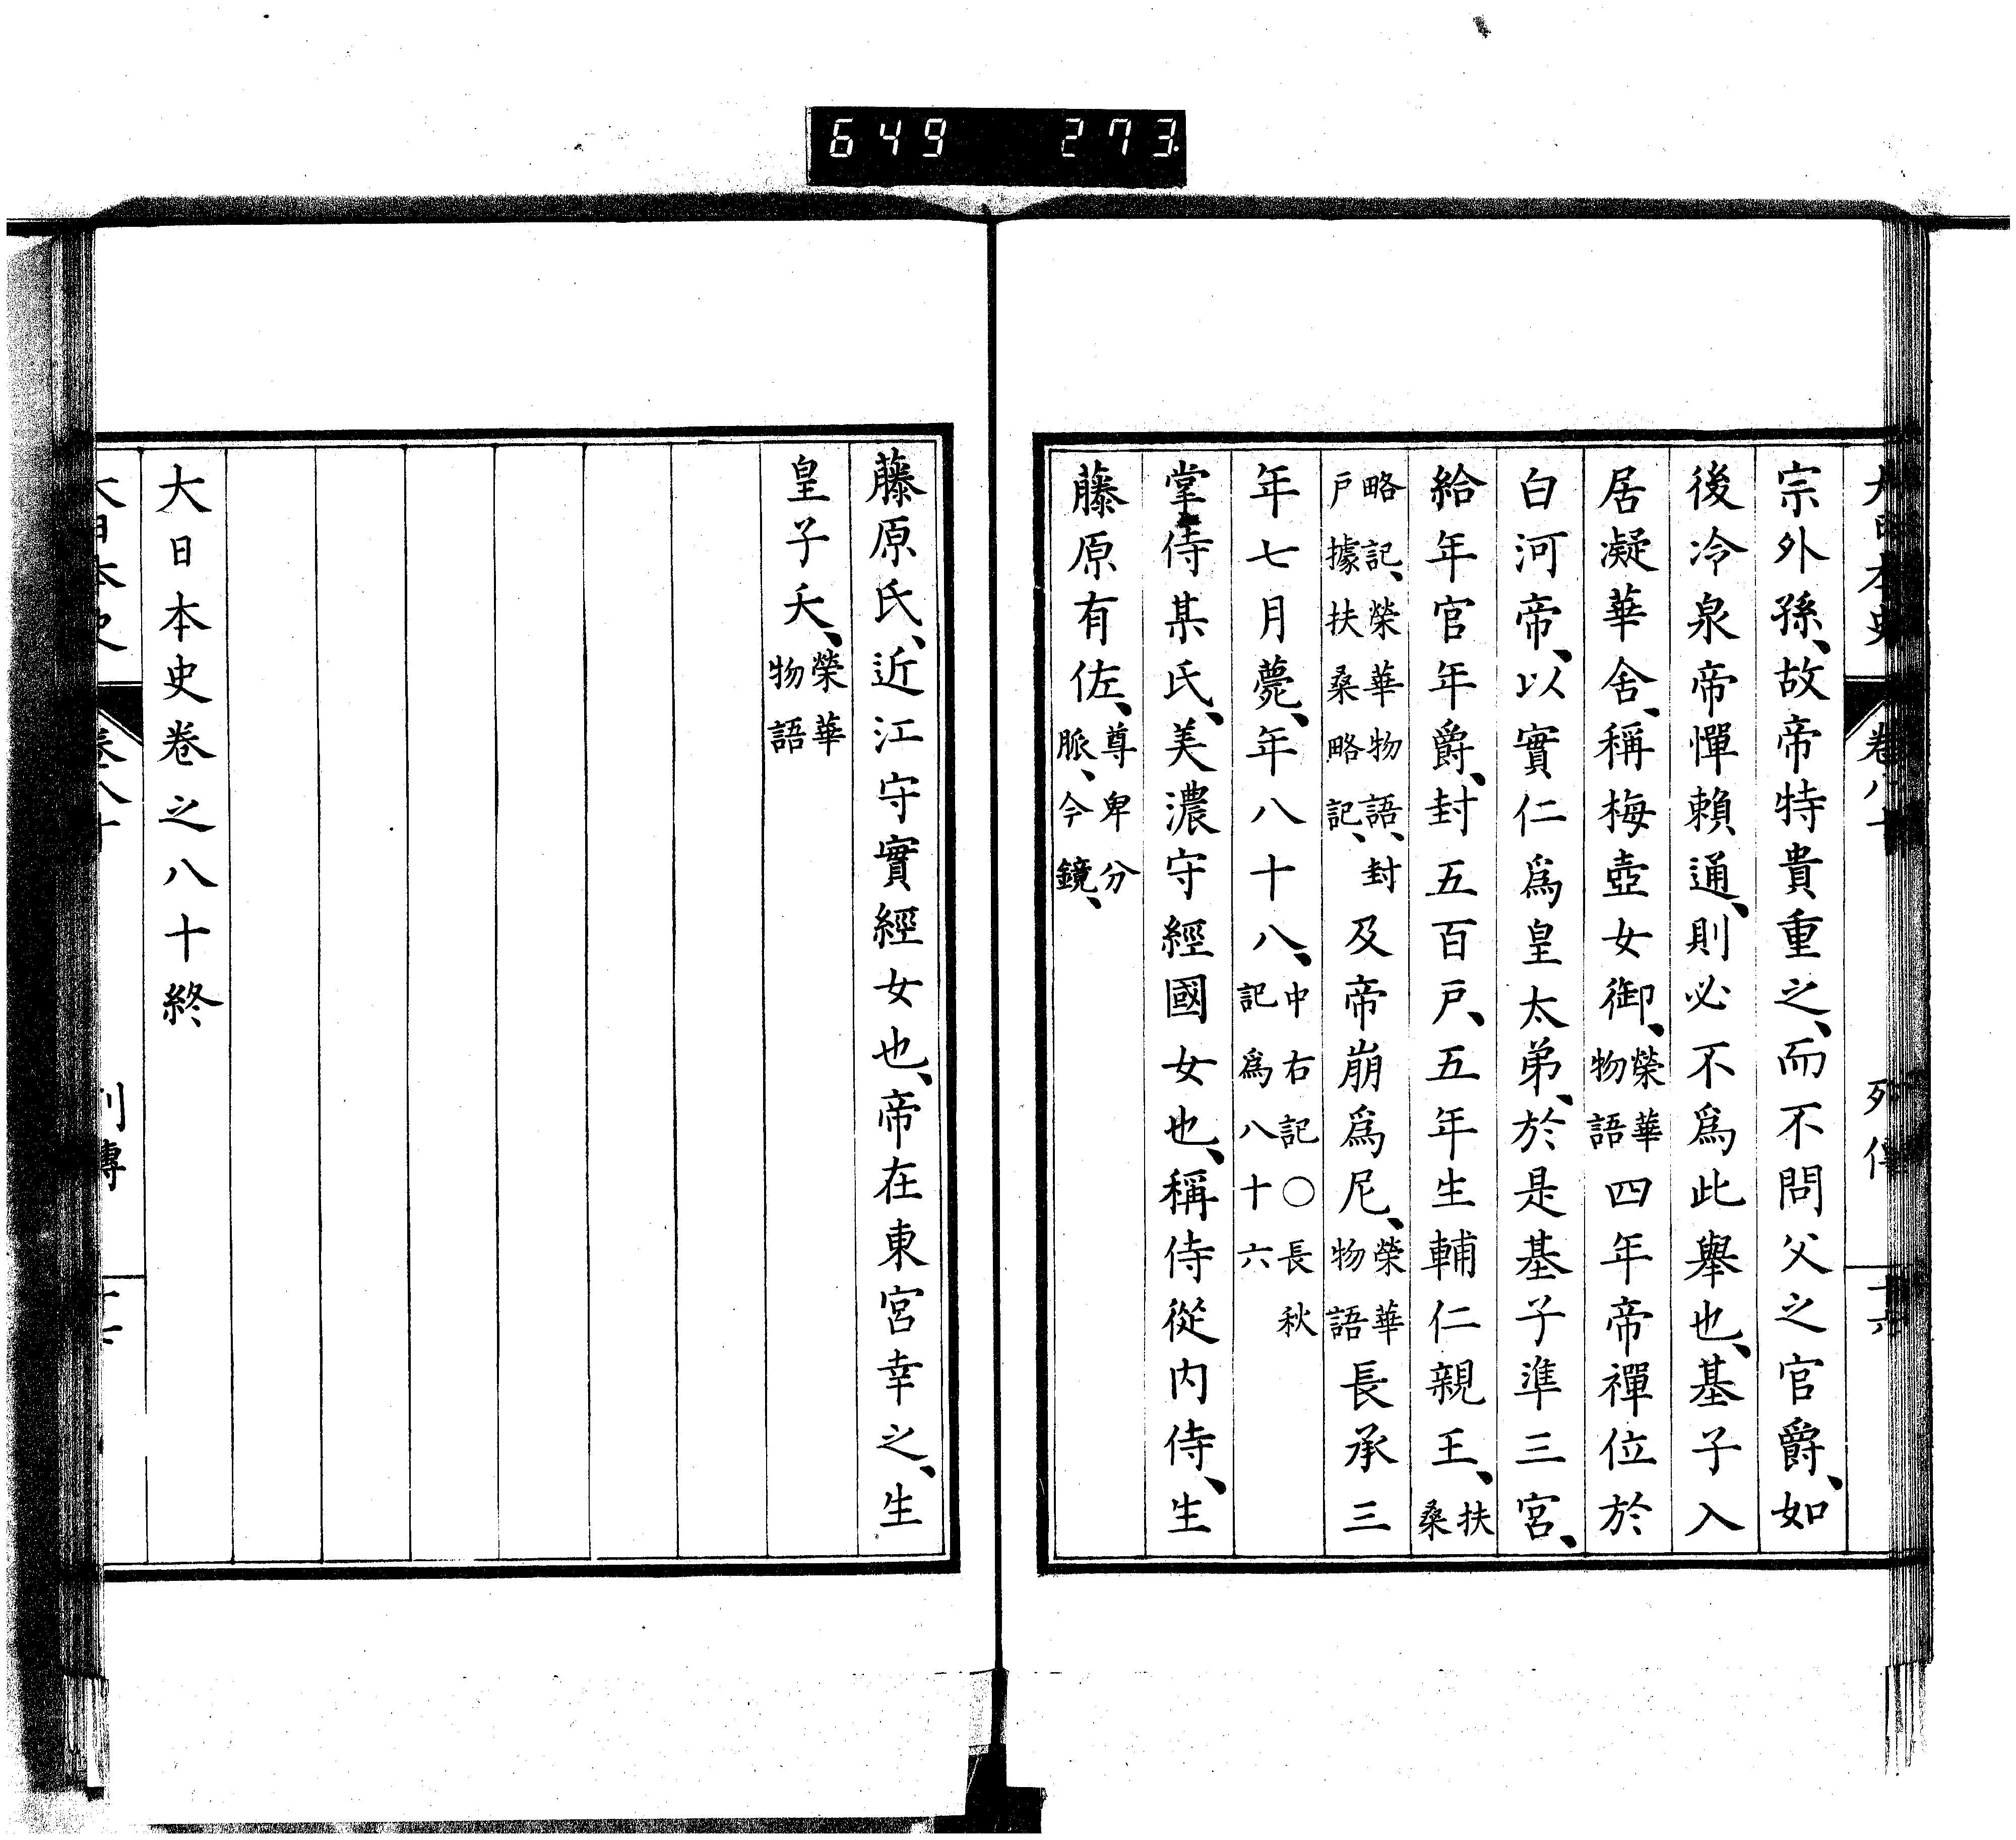 649 273
大日本史 卷八十 列傳 十六
宗外孫、故帝特貴重之、而不問父之官爵、如
後冷泉帝憚賴通、則必不爲此舉也、基子入
居凝華舍、稱梅壺女御、榮華物語四年帝禪位於
白河帝、以實仁爲皇太弟、於是基子準三宮、
給年官年爵、封五百戸、五年生輔仁親王、扶桑
略記、榮華物語、封戸據扶桑略記、及帝崩爲尼、榮華物語長承三
年七月薨、年八十八、中右記〇長秋記爲八十六
掌侍某氏、美濃守經國女也、稱侍從内侍、生
藤原有佐、尊卑分脈、今鏡、
藤原氏、近江守實經女也、帝在東宮幸之、生
皇子夭、榮華物語
大日本史卷之八十終
大日本史 卷八十 列傳